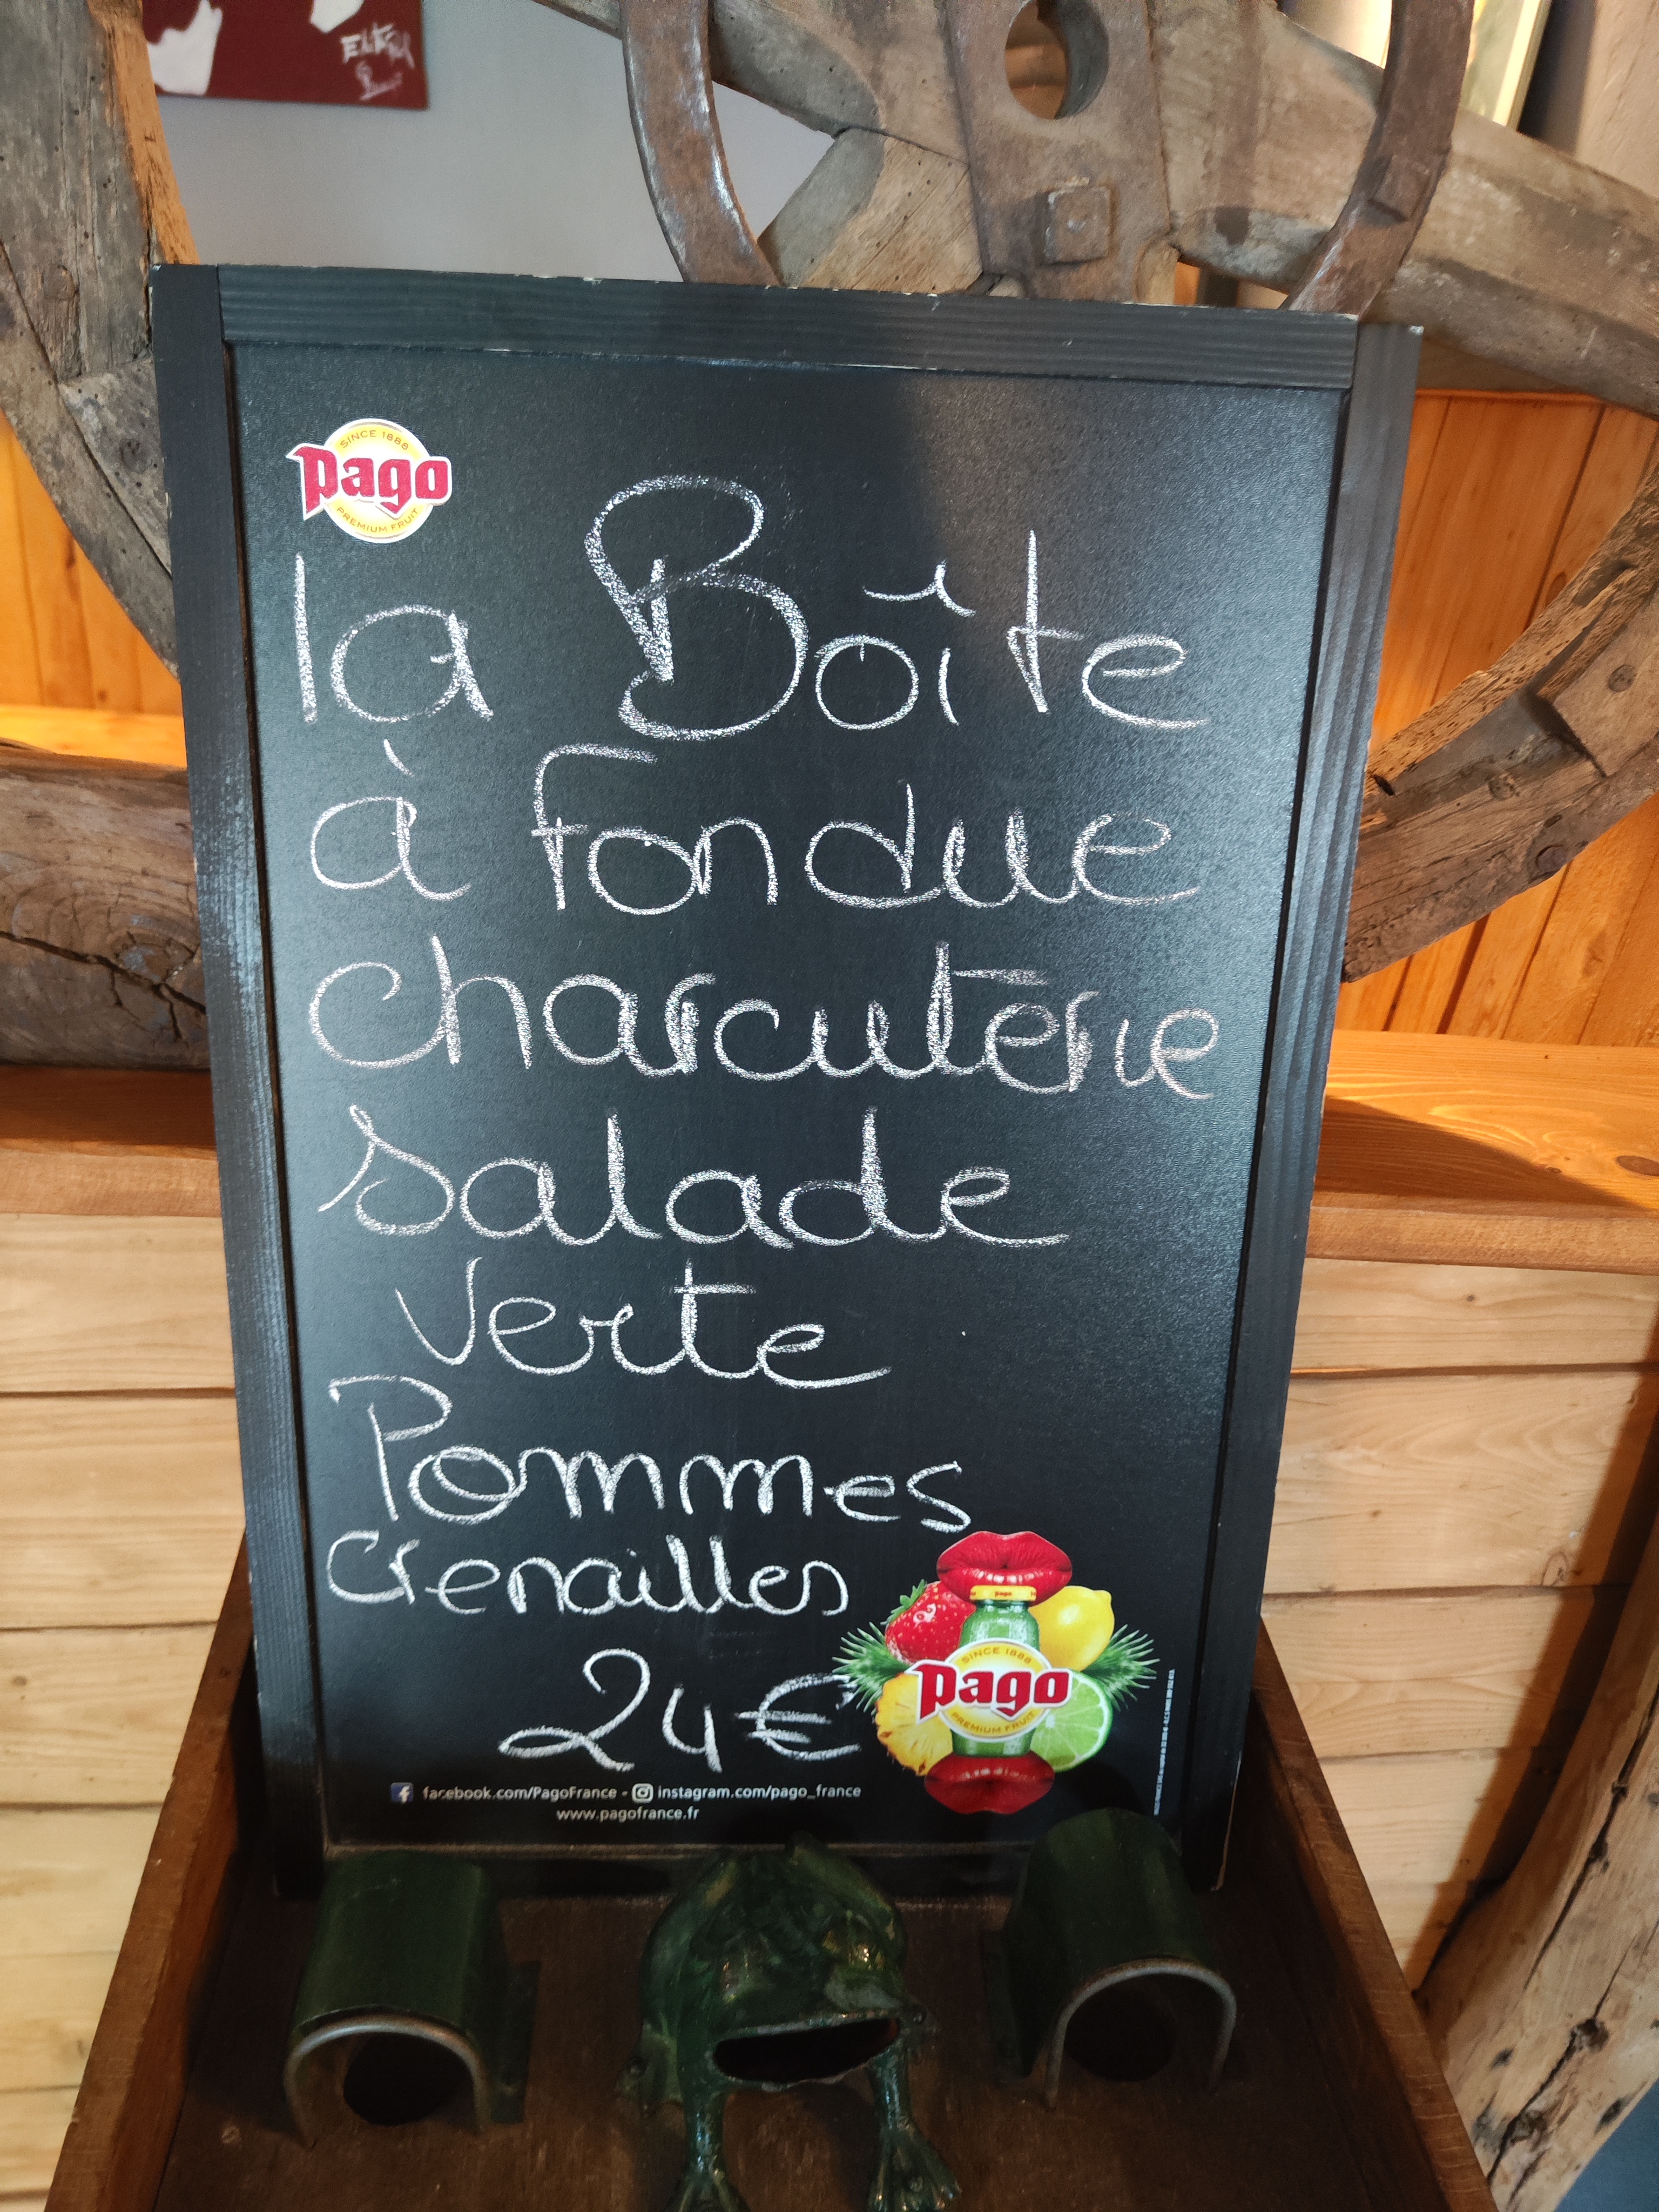 SINCE 1888
pago
PREMIUM FRUIT
la Boîte
à fondue
charcuterie
salade
verte
Pommes
Grenailles
24€
SINCE 1888
pago
PREMIUM FRUIT
facebook.com/PagoFrance - instagram.com/pago_france
www.pagofrance.fr